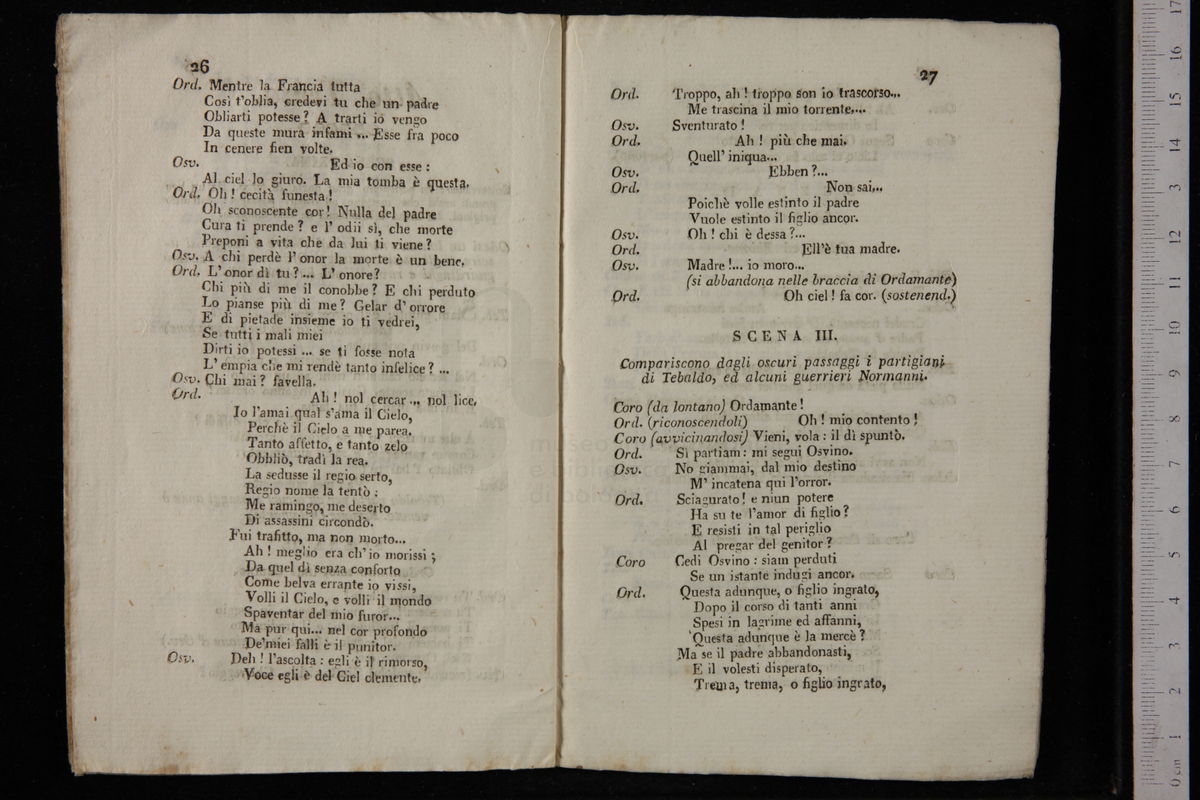 26
Ord. Mentre la Francia tutta
Così t'oblia, credevi tu che un padre
Obliarti potesse? A trarti io vengo
Da queste mura infami ... Esse fra poco
In cenere fien volte.
Osv. Ed io con esse:
Al ciel lo giuro. La mia tomba è questa.
Ord. Oh! cecità funesta!
Oh sconoscente cor! Nulla del padre
Cura ti prende? e l'odii sì, che morte
Preponi a vita che da lui ti viene?
Osv. A chi perdè l'onor la morte è un bene.
Ord. L'onor dì tu? ... L'onore?
Chi più di me il conobbe? E chi perduto
Lo pianse più di me? Gelar d'orrore
E di pietade insieme io ti vedrei,
Se tutti i mali miei
Dirti io potessi ... se ti fosse nota
L'empia che mi rendè tanto infelice? ...
Osv. Chi mai? favella.
Ord. Ah! nol cercar ... nol lice.
Io l'amai qual s'ama il Cielo,
Perchè il Cielo a me parea.
Tanto affetto, e tanto zelo
Obbliò, tradì la rea.
La sedusse il regio serto,
Regio nome la tentò:
Me ramingo, me deserto
Di assassini circondò.
Fui trafitto, ma non morto...
Ah! meglio era ch'io morissi;
Da quel dì senza conforto
Come belva errante io vissi,
Volli il Cielo, e volli il mondo
Spaventar del mio furor...
Ma pur qui... nel cor profondo
De'miei falli è il punitor.
Osv. Deh! l'ascolta: egli è il rimorso,
Voce egli è del Ciel clemente.
27
Ord. Troppo, ah! troppo son io trascorso...
Me trascina il mio torrente....
Osv. Sventurato!
Ord. Ah! più che mai.
Quell' iniqua...
Osv. Ebben?...
Ord. Non sai...
Poichè volle estinto il padre
Vuole estinto il figlio ancor.
Osv. Oh! chi è dessa?...
Ord. Ell'è tua madre.
Osv. Madre!... io moro...
(si abbandona nelle braccia di Ordamante)
Ord. Oh ciel! fa cor. (sostenend.)
SCENA III.
Compariscono dagli oscuri passaggi i partigiani
di Tebaldo, ed alcuni guerrieri Normanni.
Coro (da lontano) Ordamante!
Ord. (riconoscendoli) Oh! mio contento!
Coro (avvicinandosi) Vieni, vola: il dì spuntò.
Ord. Sì partiam: mi segui Osvino.
Osv. No giammai, dal mio destino
M'incatena qui l'orror.
Ord. Sciagurato! e niun potere
Ha su te l'amor di figlio?
E resisti in tal periglio
Al pregar del genitor?
Coro Cedi Osvino: siam perduti
Se un istante indugi ancor.
Ord. Questa adunque, o figlio ingrato,
Dopo il corso di tanti anni
Spesi in lagrime ed affanni,
Questa adunque è la mercè?
Ma se il padre abbandonasti,
E il volesti disperato,
Trema, trema, o figlio ingrato,